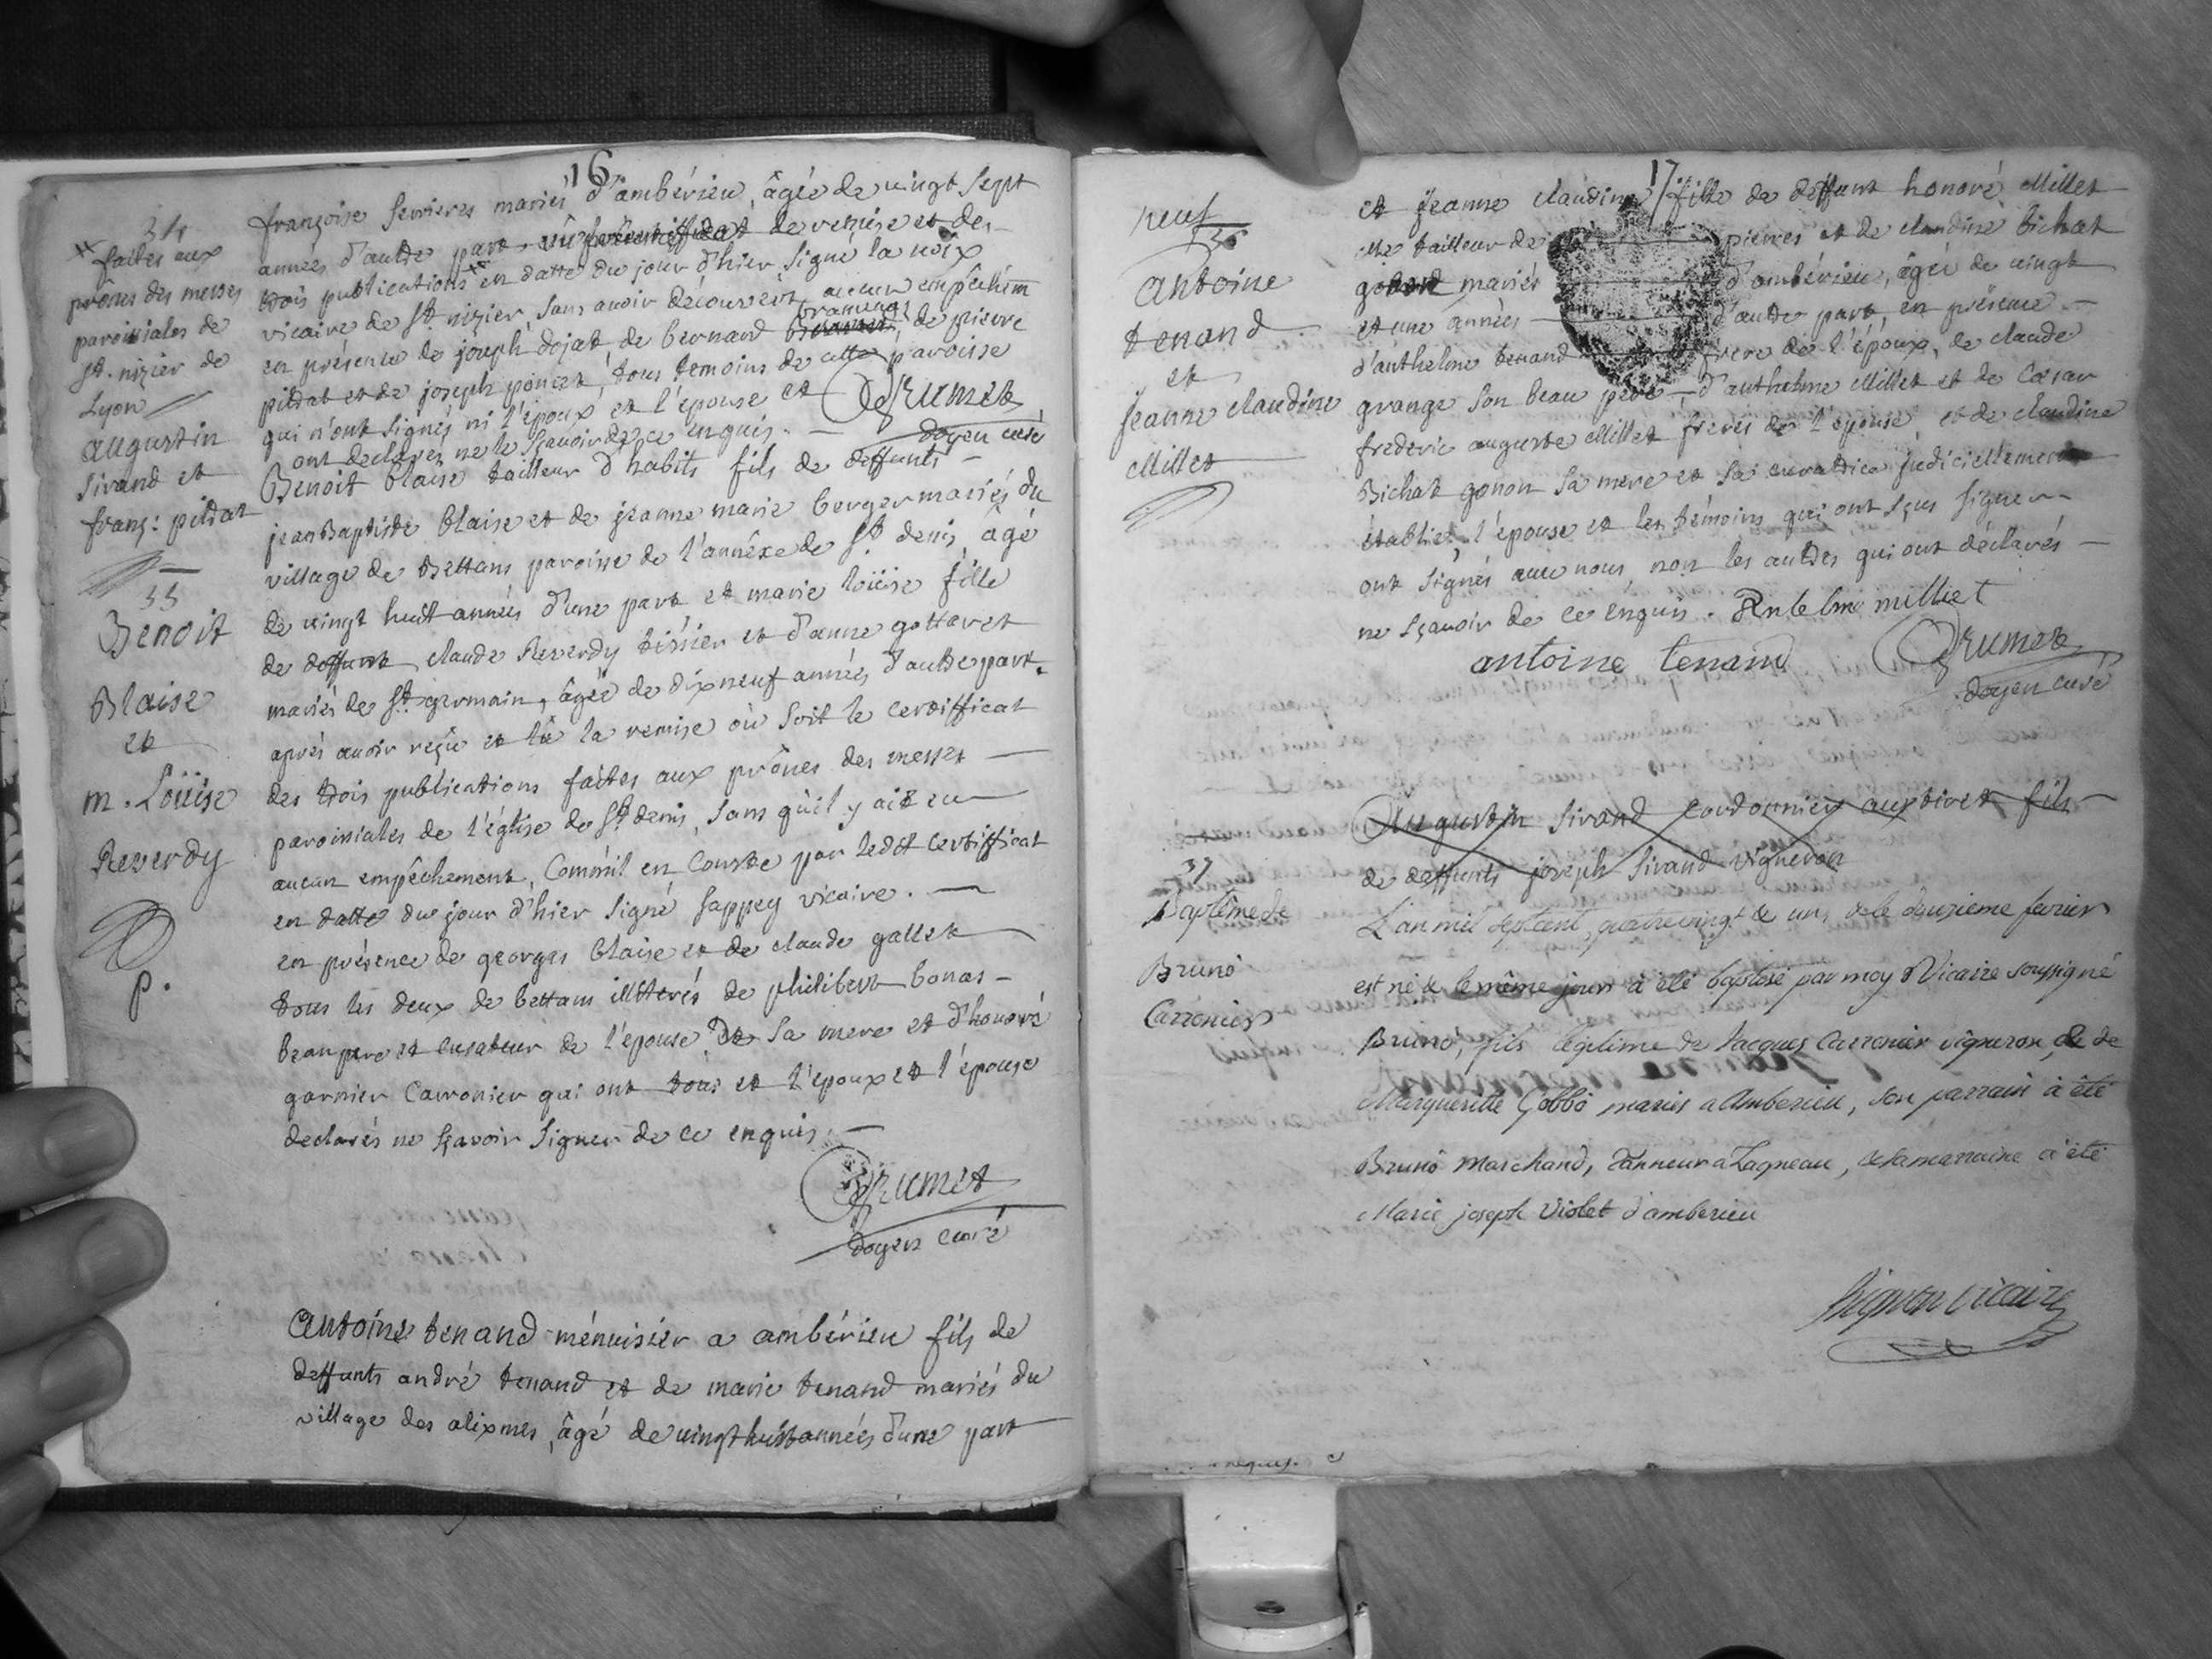 16
34
+ faites aux
prônes des messes
paroissiales de
St. nizier de
Lyon
augustin
sirand et
franç: pildat
françoise ferrieres mariés d'ambérieu, âgée de vingt sept
années d'autre part, de remise et des
trois publications + en datte du jour d'hier signé la noix
vicaire de St. nizier, sans avoir découvert aucun empêchem
en présence de joseph dojat, de bernard bramens, de pierre
pildat et de joseph poncet, tous temoins de cette paroisse
qui n'ont signés ni l'époux et l'épouse et
ont declarés ne le sçavoir de ce enquis. Grumet
doyen curé
35
Benoit
Blaise
et
m. Loüise
Reverdy
p.
Benoit blaise tailleur d'habits fils de deffunts
jean Baptiste blaise et de jeanne marie berger mariés du
village de Bettans paroisse de l'annéxe de St. denis, âgé
de vingt huit années d'une part, et marie loüise fille
de deffunt claude Reverdy tissier et d'anne gottaret
mariés de St. germain, âgée de dixneuf années d'autre part.
après avoir reçu et lû la remise où soit le certifficat
des trois publications faites aux prônes des messes
paroissiales de l'église de St. denis, sans qu'il y ait eu
aucun empêchement, Comm'il en Conste par ledt certifficat
en datte du jour d'hier signé sappey vicaire.
en présence de georges blaise et de claude gallet
tous les deux de bettans illiterés de philibert bonas
beau pere et curateur de l'épouse de sa mere et d'honoré
garnier Carronier qui ont tous et l'epoux et l'épouse
declarés ne sçavoir signer de ce enquis.
Grumet
doyen curé
antoine tenand ménuisier a ambérieu fils de
deffunts andré tenand et de marie tenand mariés du
village des alixmes, âgé de vingt huit années d'une part
17
36
antoine
tenand
et
jeanne claudine
Millet
et jeanne claudine fille de deffunt honoré Millet
me tailleur de pierres et de claudine bichat
gonon mariés d'ambérieu, âgée de vingt
et une années d'autre part, en présence
d'anthelme tenand frere de l'époux, de claude
grange son beau pere, d'anthelme Millet et de Cœsar
frederic auguste Millet freres de l'épouse, et de claudine
Bichat gonon sa mere et sa curatrice judiciellement
établie, l'épouse et les témoins qui ont sçus signer
ont signés avec nous, non les autres qui ont déclarés
ne sçavoir de ce enquis. Antelme milliet
antoine tenand Grumet
doyen curé
Augustin Sirand Cordonnier aux fils
de deffunts joseph Sirand vigneron
37
Baptême de
Bruno
Carronier
L'an mil septcent quatrevingt & un, & le deuxieme fevrier
est né & le même jour à été baptisé par moy Vicaire soussigné
Bruno, fils légitime de Jacques Carronier vigneron, & de
Marguerite Gobbo mariés a Amberieu, son parrain à été
Bruno Marchand, Tanneur a Lagneau, & sa marraine à été
Marie joseph Violet d'amberieu
vicaire